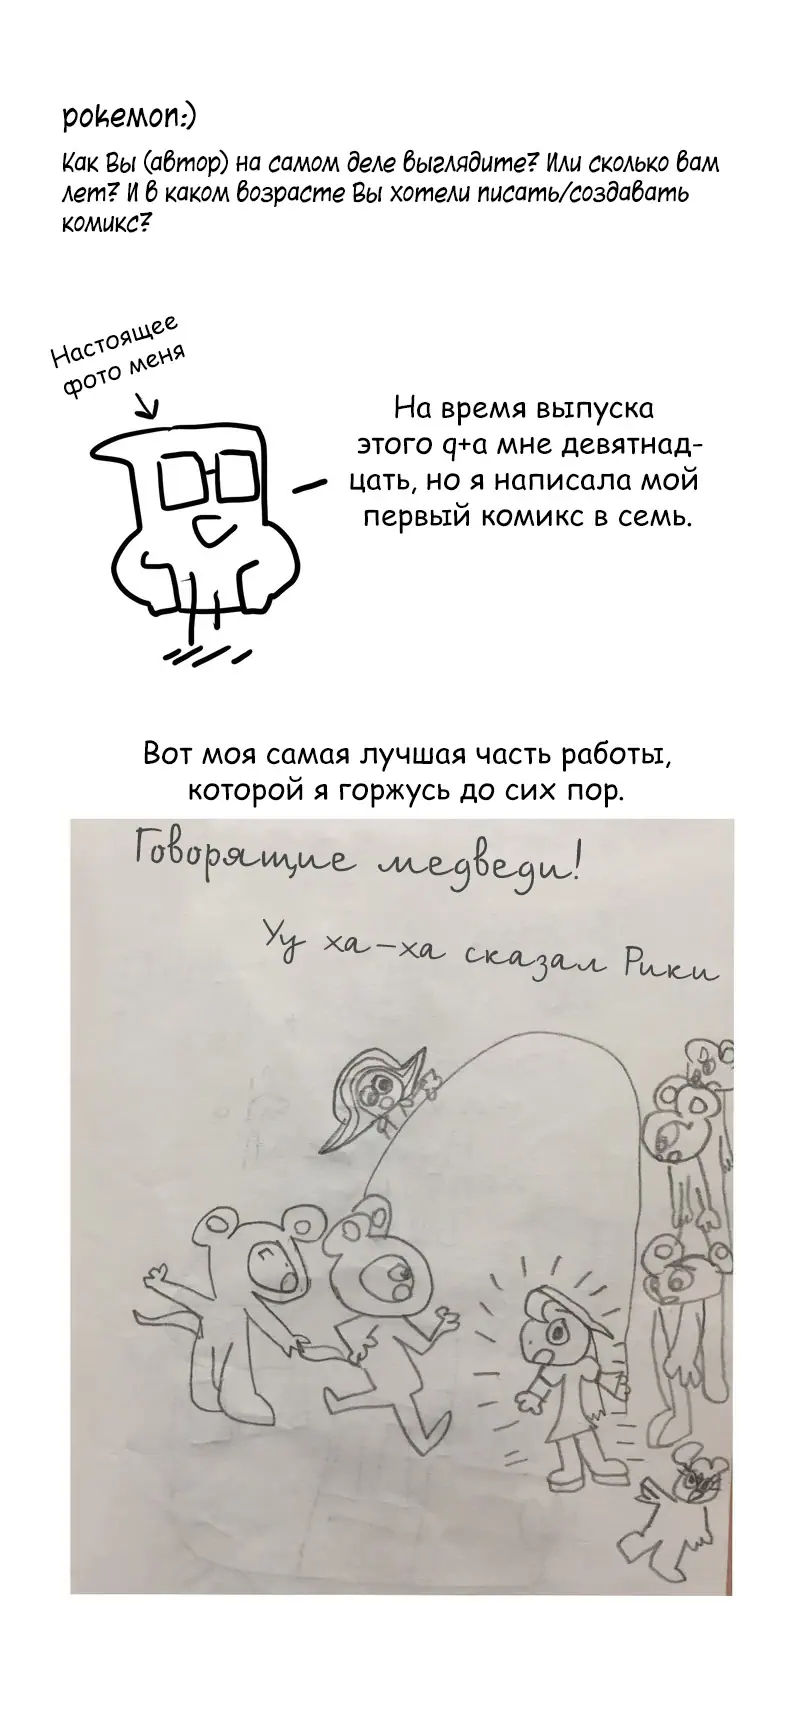 pokemon:)
Как Вы (автор) на самом деле выглядите? Или сколько вам
лет? И в каком возрасте Вы хотели писать/создавать
комикс?
Настоящее
фото меня
На время выпуска
этого q+a мне девятнад-
цать, но я написала мой
первый комикс в семь.
Вот моя самая лучшая часть работы,
которой я горжусь до сих пор.
Говорящие медведи!
Уу ха-ха сказал Рики